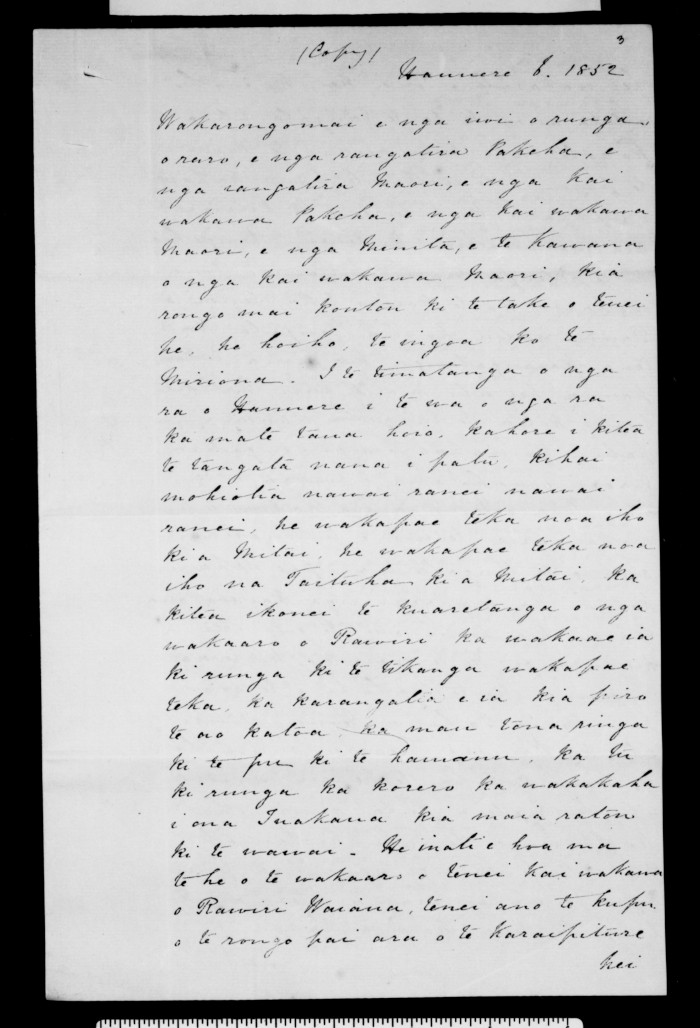 3
(Copy)
Hanuere 6. 1852
Wakarongomai e nga iwi o runga,
o raro, e nga rangatira Pakeha, e
nga rangatira Maori, e nga Kai
wakawa Pakeha, e nga Kai wakawa
Maori, e nga Minita, e te Kawana
o nga Kai wakawa Maori, kia
rongo mai koutou ki te take o tenei
he, he hoiho, te ingoa ko te
Miriona. I te timatanga o nga
ra o Hanuere i te wa o nga ra
ka mate tana hoio. Kahore i kitea
te tangata nana i patu, kihai
mohiotia nawai ranei nawai
ranei, he wakapae teka noa iho
ki a Mitai, he wakapae teka noa
iho na Taituha ki a Mitai. Ka
kitea ikonei te kuaretanga o nga
wakaaro o Rawiri ka wakaae ia
ki runga ki te tikanga wakapae
teka, ka karangatia e ia kia piro
te ao katoa, ka mau tona ringa
ki te pu ki te hamanu, ka tu
ki runga ka korero ka wakakaha
i ona Tuakana kia maia ratou
ki te wawai. He inati e hoa ma
te he o te wakaaro o tenei Kai wakawa
o Rawiri Waiaua, tenei ano te kupu
o te rongo pai ara o te Karaipiture
hei